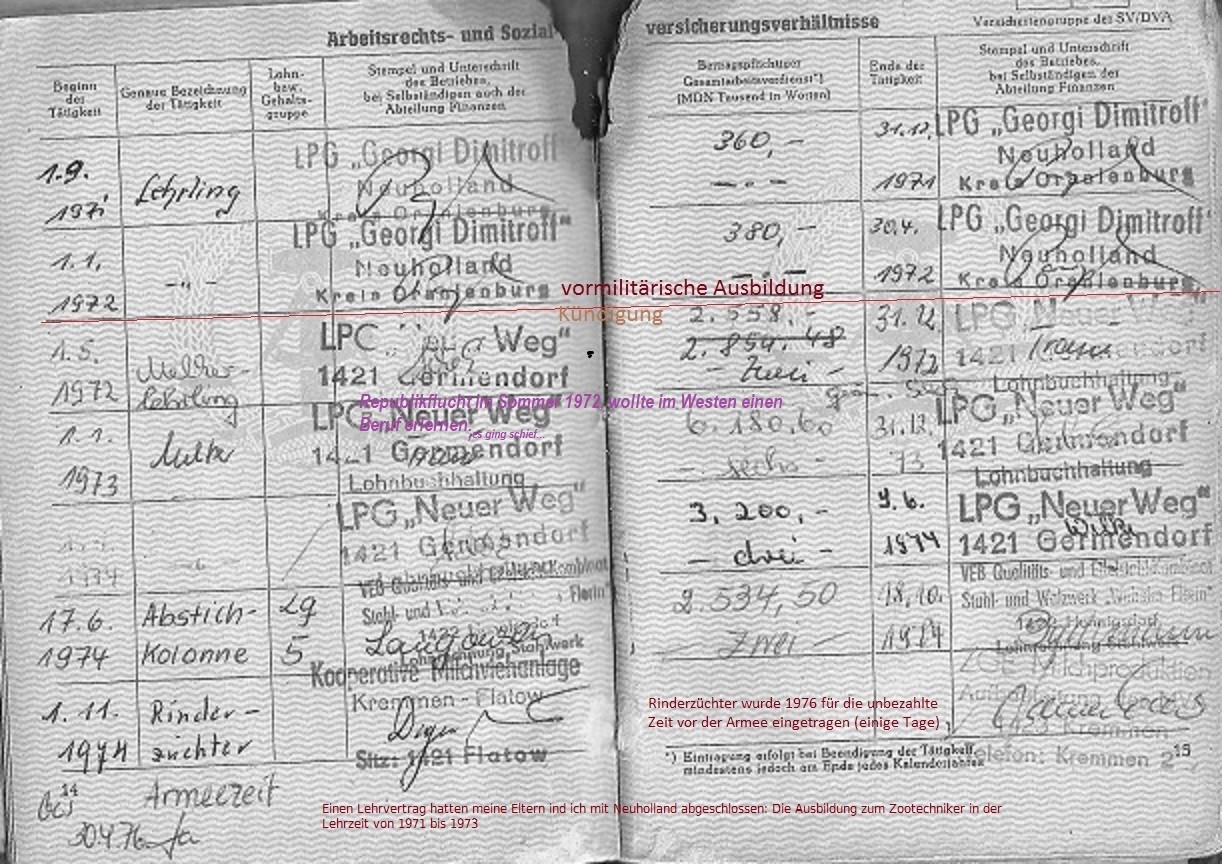 Arbeitsrechts- und Sozial-
versicherungsverhältnisse
Versichertengruppe der SV/DVA
Beginn
der
Tätigkeit
Genaue Bezeichnung
der Tätigkeit
Lohn-
bzw.
Gehalts-
gruppe
Stempel und Unterschrift
des Betriebes,
bei Selbständigen auch der
Abteilung Finanzen
Beitragspflichtiger
Gesamtarbeitsverdienst*)
(MDN Tausend in Worten)
Ende der
Tätigkeit
Stempel und Unterschrift
des Betriebes,
bei Selbständigen der
Abteilung Finanzen
1.9.
1971
Lehrling
LPG „Georgi Dimitroff"
Neuholland
Kreis Oranienburg
360,-
-.-
31.12.
1971
LPG „Georgi Dimitroff"
Neuholland
Kreis Oranienburg
1.1.
1972
-„-
LPG „Georgi Dimitroff"
Neuholland
Kreis Oranienburg
380,-
-.-
30.4.
1972
LPG „Georgi Dimitroff"
Neuholland
Kreis Oranienburg
vormilitärische Ausbildung
Kündigung
1.5.
1972
Melker-
lehrling
LPG Weg"
1421 Germendorf
2.558,-
2.854,48
- Zwei
31.12.
1972
LPG Neuer Weg"
1421
Lohnbuchhaltung
Republikflucht im Sommer 1972, wollte im Westen einen
Beruf erlernen.
,es ging schief...
1.1.
1973
Melker
LPG „Neuer Weg"
Germendorf
Lohnbuchhaltung
6.180,60
- sechs -
31.12.
73
LPG „Neuer Weg"
1421 Germendorf
Lohnbuchhaltung
1974
LPG „Neuer Weg"
1421 Germendorf
3.200,-
- drei -
9.6.
1974
LPG „Neuer Weg"
1421 Germendorf
17.6.
1974
Abstich-
Kolonne
Lg
5
VEB Qualitäts- und Edelstahl-Kombinat
Stahl- und Florin"
2.534,50
- Zwei -
18.10.
1974
VEB Qualitäts- und Edelstahl-Kombinat
Stahl- und Walzwerk „Wilhelm Florin"
1.11.
1974
Rinder-
züchter
Kooperative Milchviehanlage
Kremmen - Flatow
Sitz: 1421 Flatow
ZGE Milchproduktion
Kremmen
Telefon: Kremmen 2
Rinderzüchter wurde 1976 für die unbezahlte
Zeit vor der Armee eingetragen (einige Tage)
*) Eintragung erfolgt bei Beendigung der Tätigkeit,
mindestens jedoch am Ende jedes Kalenderjahres
15
14
Armeezeit
bis
30.4.76
Einen Lehrvertrag hatten meine Eltern ind ich mit Neuholland abgeschlossen: Die Ausbildung zum Zootechniker in der
Lehrzeit von 1971 bis 1973